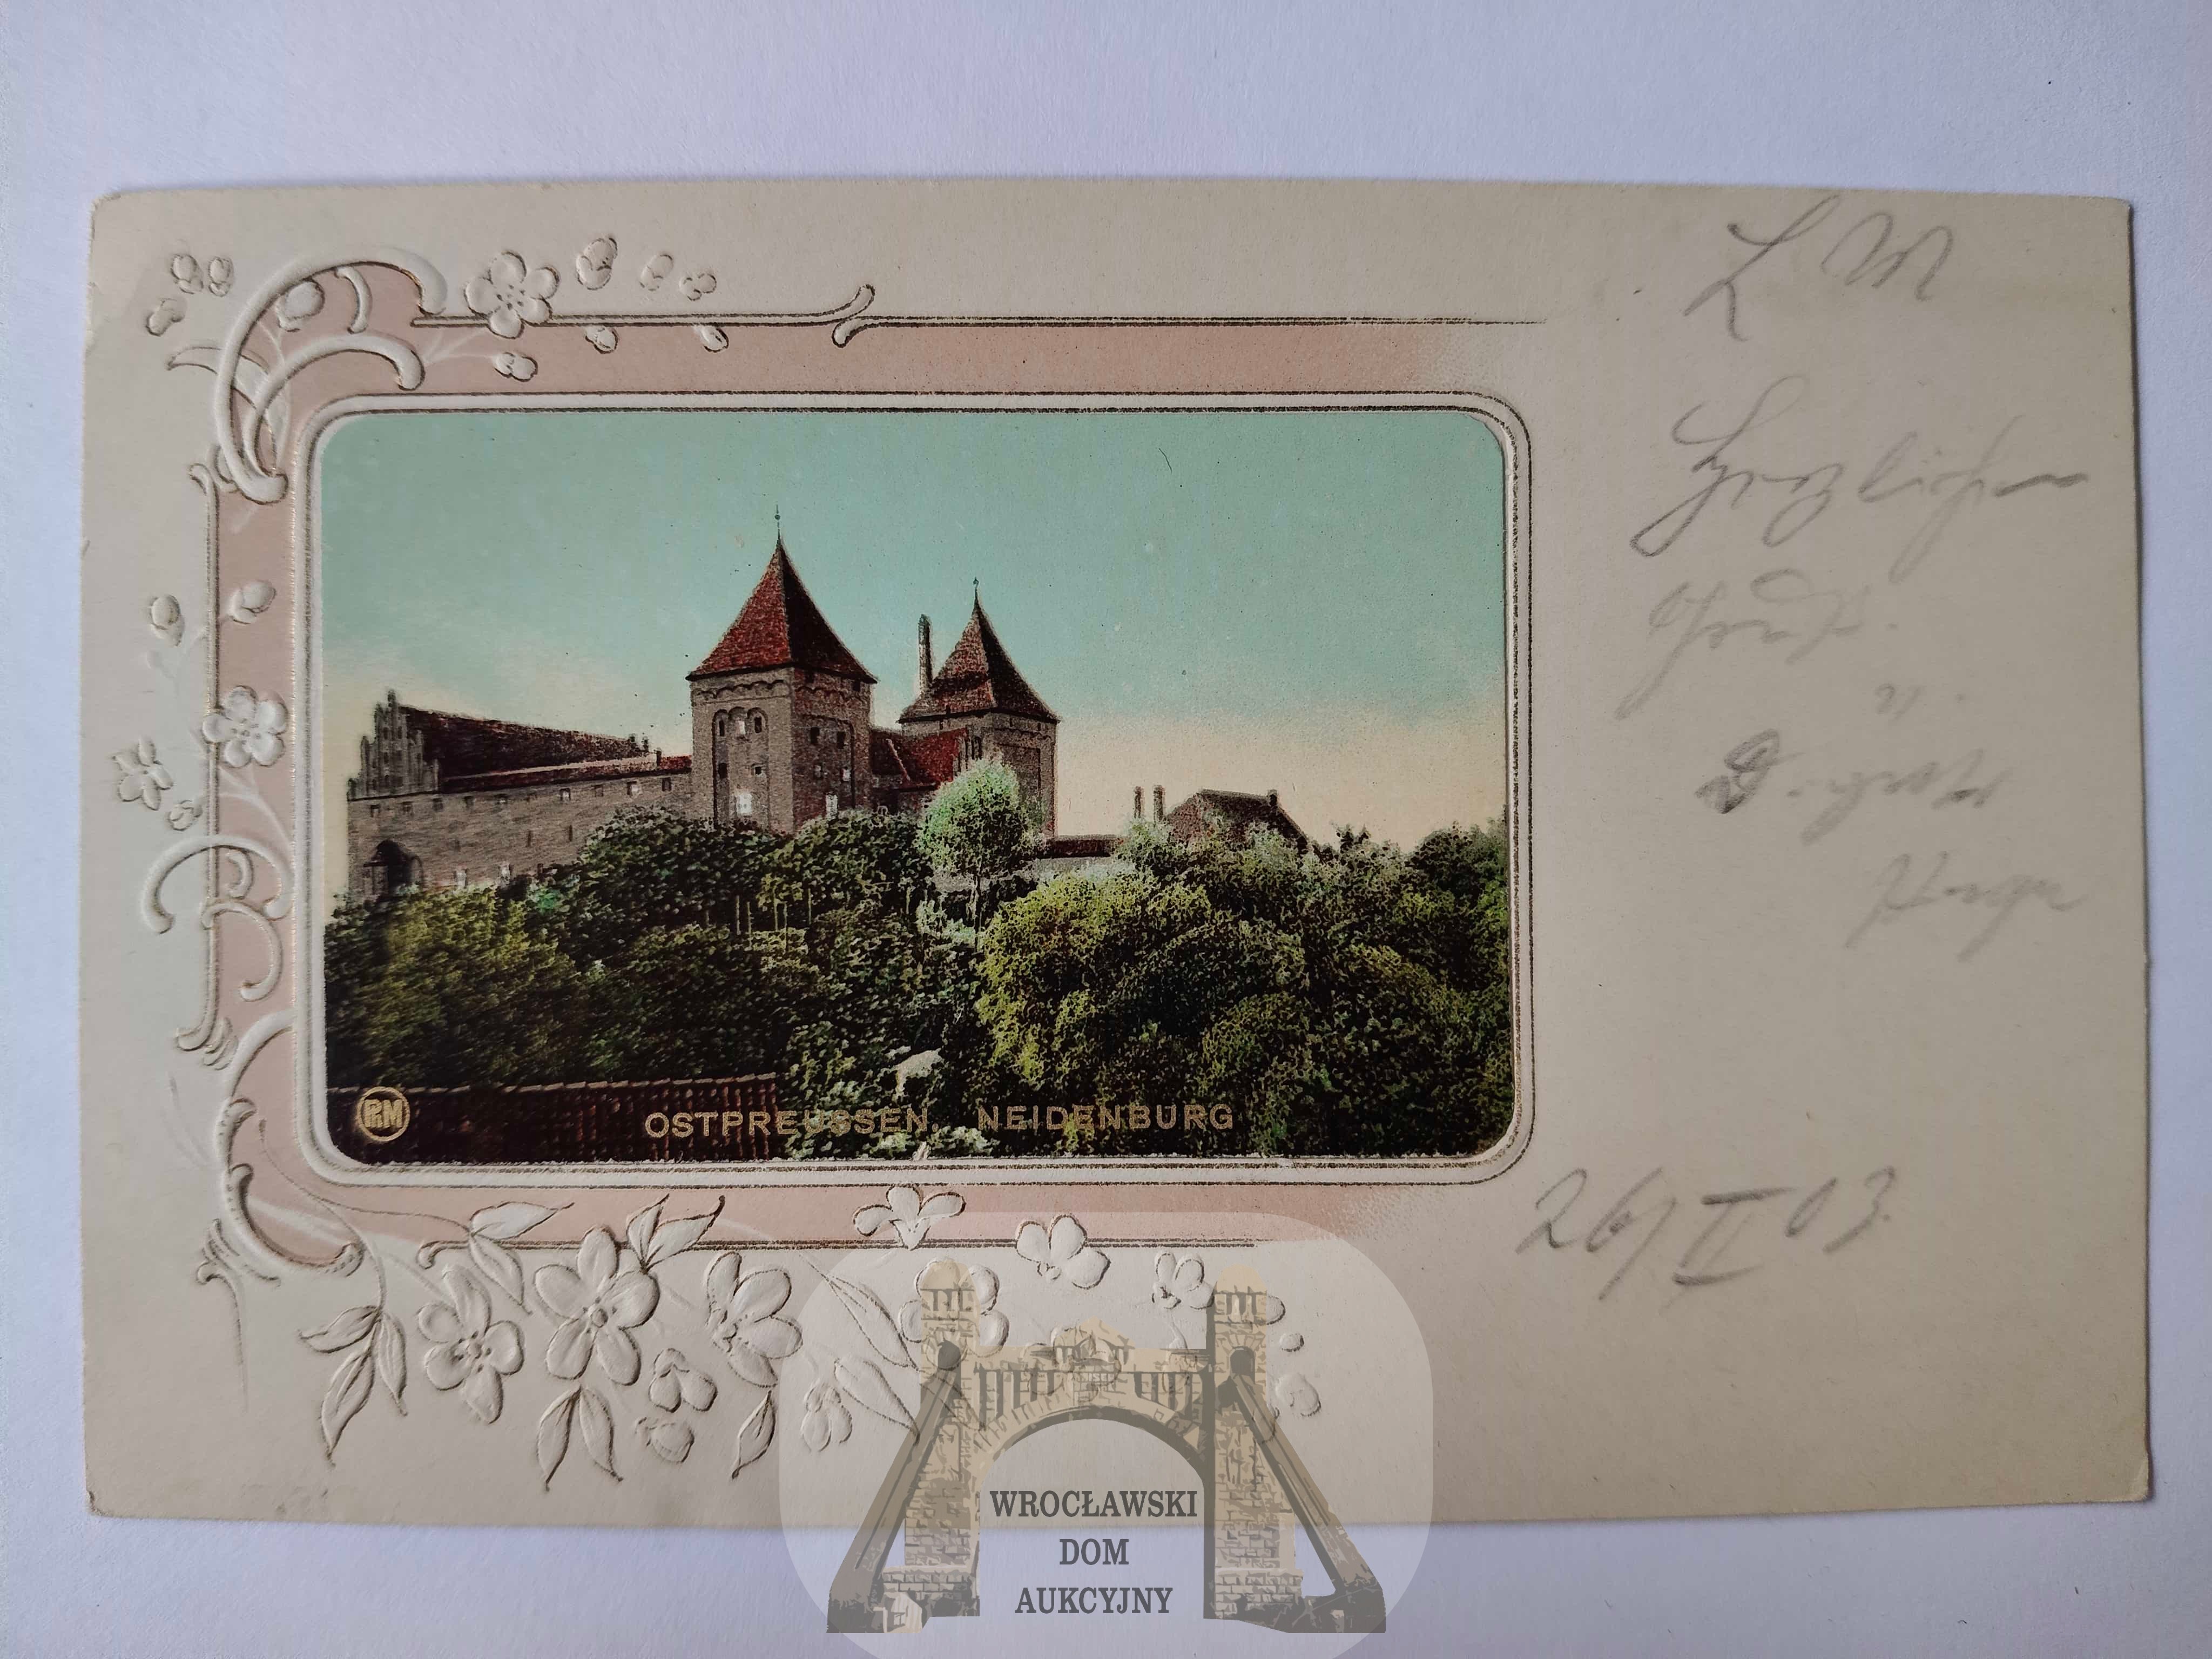 L M
Herzlichen
Gruß.
u.
26/II 03.
RM
OSTPREUSSEN. NEIDENBURG
WROCŁAWSKI
DOM
AUKCYJNY